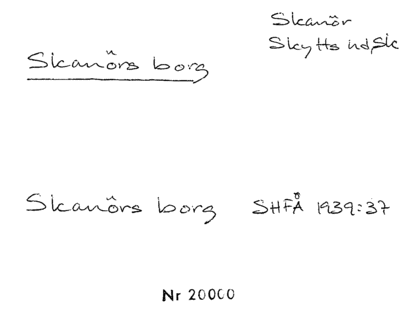 Skanör
Skytts hd, Sk
Skanörs borg
Skanörs borg SHFÅ 1939:37
Nr 20000